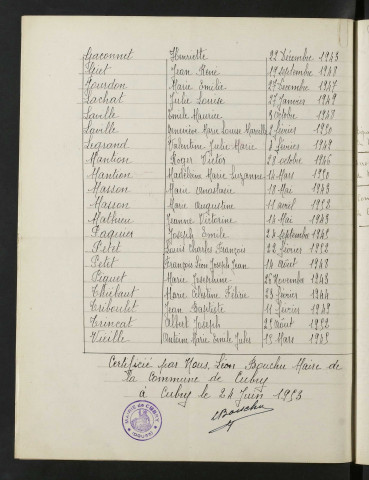 Jaconnet Henriette 22 Décembre 1943
Huet Jean René 19 septembre 1948
Jourdon Marie Emilie 27 Décembre 1947
Lachat Julie Louise 27 Janvier 1949
Laville Emile Maurice 3 octobre 1948
Laville Geneviève Marie Louise 2 février 1950
Legrand Valentine Julie Marie 8 février 1949
Mantion Roger Victor 28 octobre 1946
Mantion Madeleine Marie Suzanne 14 Mars 1950
Masson Marie Anastasie 18 Mai 1943
Masson Marie Augustine 11 avril 1952
Mathieu Jeanne Victorine 14 Mai 1943
Paguier Joseph Emile 24 septembre 1949
Petet Louis Charles François 22 février 1952
Petet François Léon Joseph Jean 14 Août 1948
Piquet Marie Joséphine 25 Novembre 1943
Thiébaut Marie Célestine Féline 23 février 1944
Triboulet Jean Baptiste 11 février 1949
Truncat Albert Joseph 29 Août 1952
Vieille Antoine Marie Emile Jules 13 Mars 1945
Certifié par Nous, Léon Bouchu Maire de
la Commune de Cubry
à Cubry le 24 Juin 1953
LBouchu
MAIRIE DE CUBRY (DOUBS)